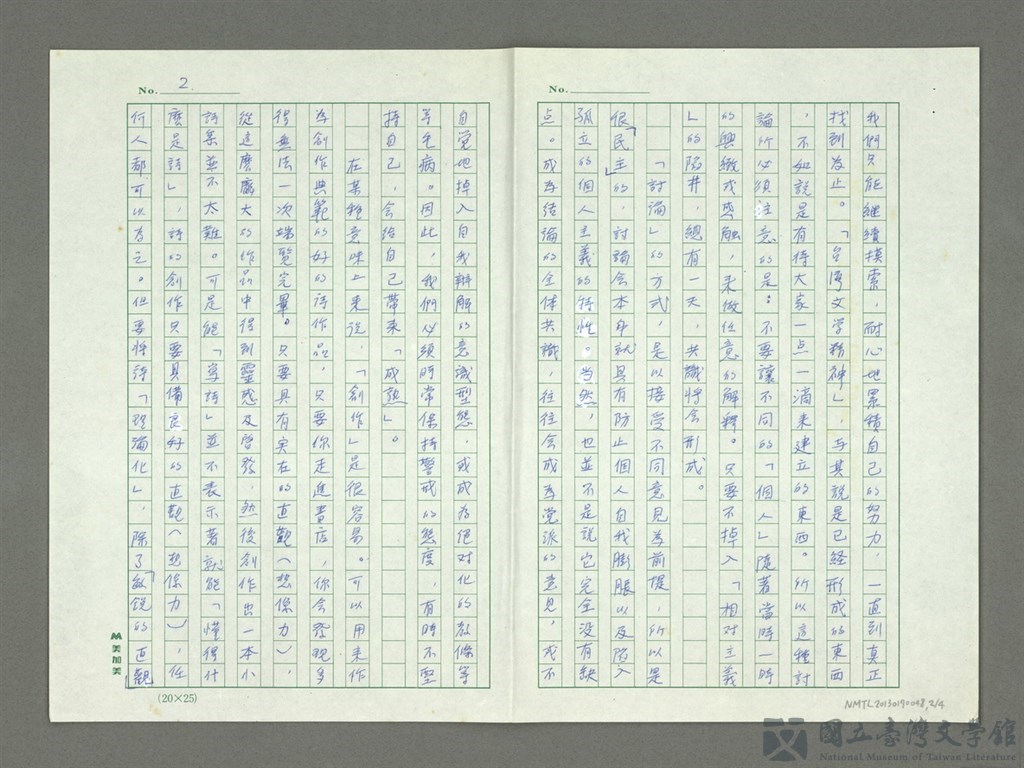 No.
我們只能繼續摸索，耐心地累積自己的努力，一直到真正
找到為止。「台灣文學精神」，與其說是已經形成的東西
，不如說是有待大家一點一滴來建立的東西。所以這種討
論所必須注意的是：不要讓不同的「個人」隨著當時一時
的興緻或感觸，來做任意的解釋。只要不掉入「相對主義
」的陷井，總有一天，共識將會形成。
「討論」的方式，是以接受不同意見為前提，所以是
很「民主」的，討論會本身就具有防止個人自我膨脹以及陷入
孤立的個人主義的特性。當然，也並不是說它完全沒有缺
点。成為結論的全体共識，往往會成為黨派的意見，或不
No. 2.
自觉地掉入自我辯解的意識型態，或成為绝对化的教條等
等毛病。因此，我們必須時常保持警戒的態度，有時不堅
持自己，會給自己帶來「成熟」。
在某種意味上來說，「創作」是很容易。可以用來作
為創作典範的好的詩作品，只要你走進書店，你会發現多
得無法一次端覽完畢。只要具有实在的直觀（想像力），
從這麼龐大的作品中得到靈感及啓發，然後創作出一本小
詩集並不太難。可是能「寫詩」並不表示著就能「懂得什
麼是詩」，詩的創作只要具備良好的直觀（想像力），任
何人都可以為之。但要將詩「理論化」，除了敏銳的「直觀
美加美
(20×25)
NMTL20130190048,2/4
國立臺灣文學館
National Museum of Taiwan Literature